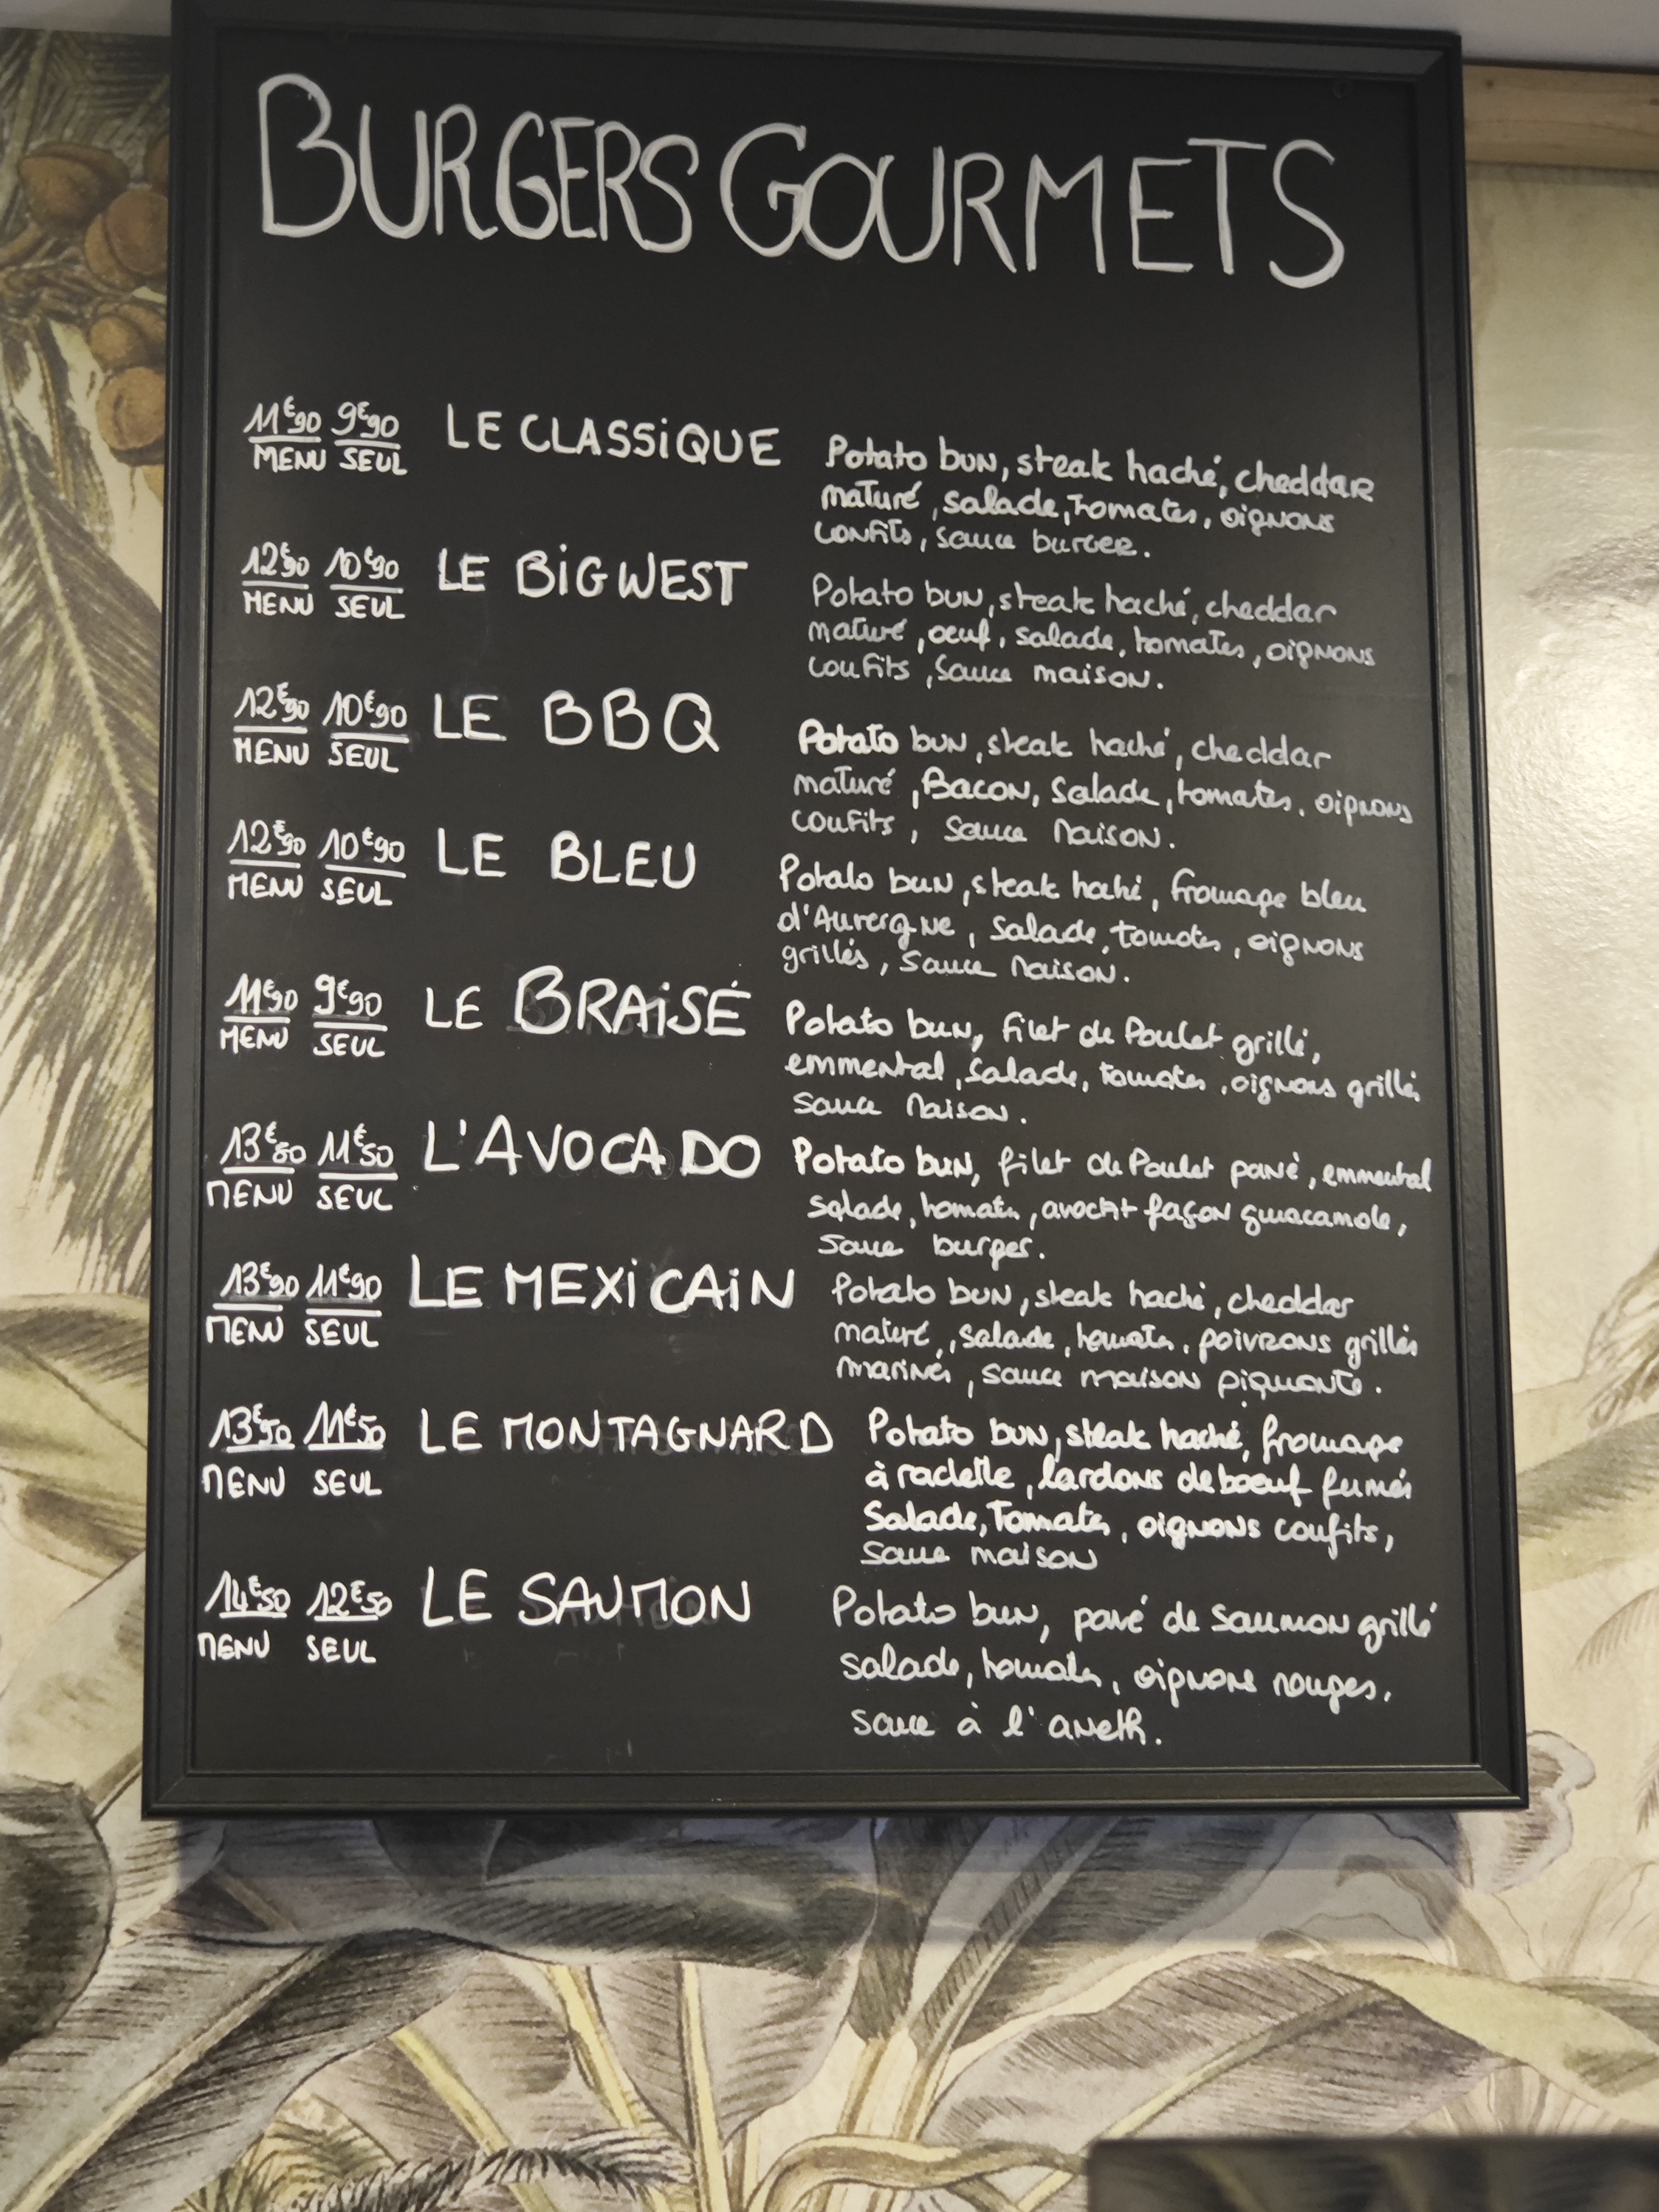 BURGERS GOURMETS
11€90 9€90 LE CLASSIQUE Potato bun, steak haché, cheddar
MENU SEUL maturé, salade, tomates, oignons
confits, sauce burger.
12€90 10€90 LE BIGWEST Potato bun, steak haché, cheddar
MENU SEUL maturé, oeuf, salade, tomates, oignons
confits, sauce maison.
12€90 10€90 LE BBQ Potato bun, steak haché, cheddar
MENU SEUL maturé, Bacon, Salade, tomates, oignons
confits, sauce Maison.
12€90 10€90 LE BLEU Potato bun, steak haché, fromage bleu
MENU SEUL d'Auvergne, Salade, tomates, oignons
grillés, Sauce Maison.
11€90 9€90 LE BRAISÉ Potato bun, filet de Poulet grillé,
MENU SEUL emmental, salade, tomates, oignons grillés
Sauce Maison.
13€50 11€50 L'AVOCADO Potato bun, filet de Poulet pané, emmental
MENU SEUL salade, tomates, avocat façon guacamole,
Sauce burger.
13€90 11€90 LE MEXICAIN Potato bun, steak haché, cheddar
MENU SEUL maturé, salade, tomates, poivrons grillés
marinés, sauce maison piquante.
13€50 11€50 LE MONTAGNARD Potato bun, steak haché, fromage
MENU SEUL à raclette, lardons de boeuf fumés
Salade, Tomates, oignons confits,
Sauce maison
14€50 12€50 LE SAUMON Potato bun, pavé de Saumon grillé
MENU SEUL salade, tomates, oignons rouges,
sauce à l'aneth.